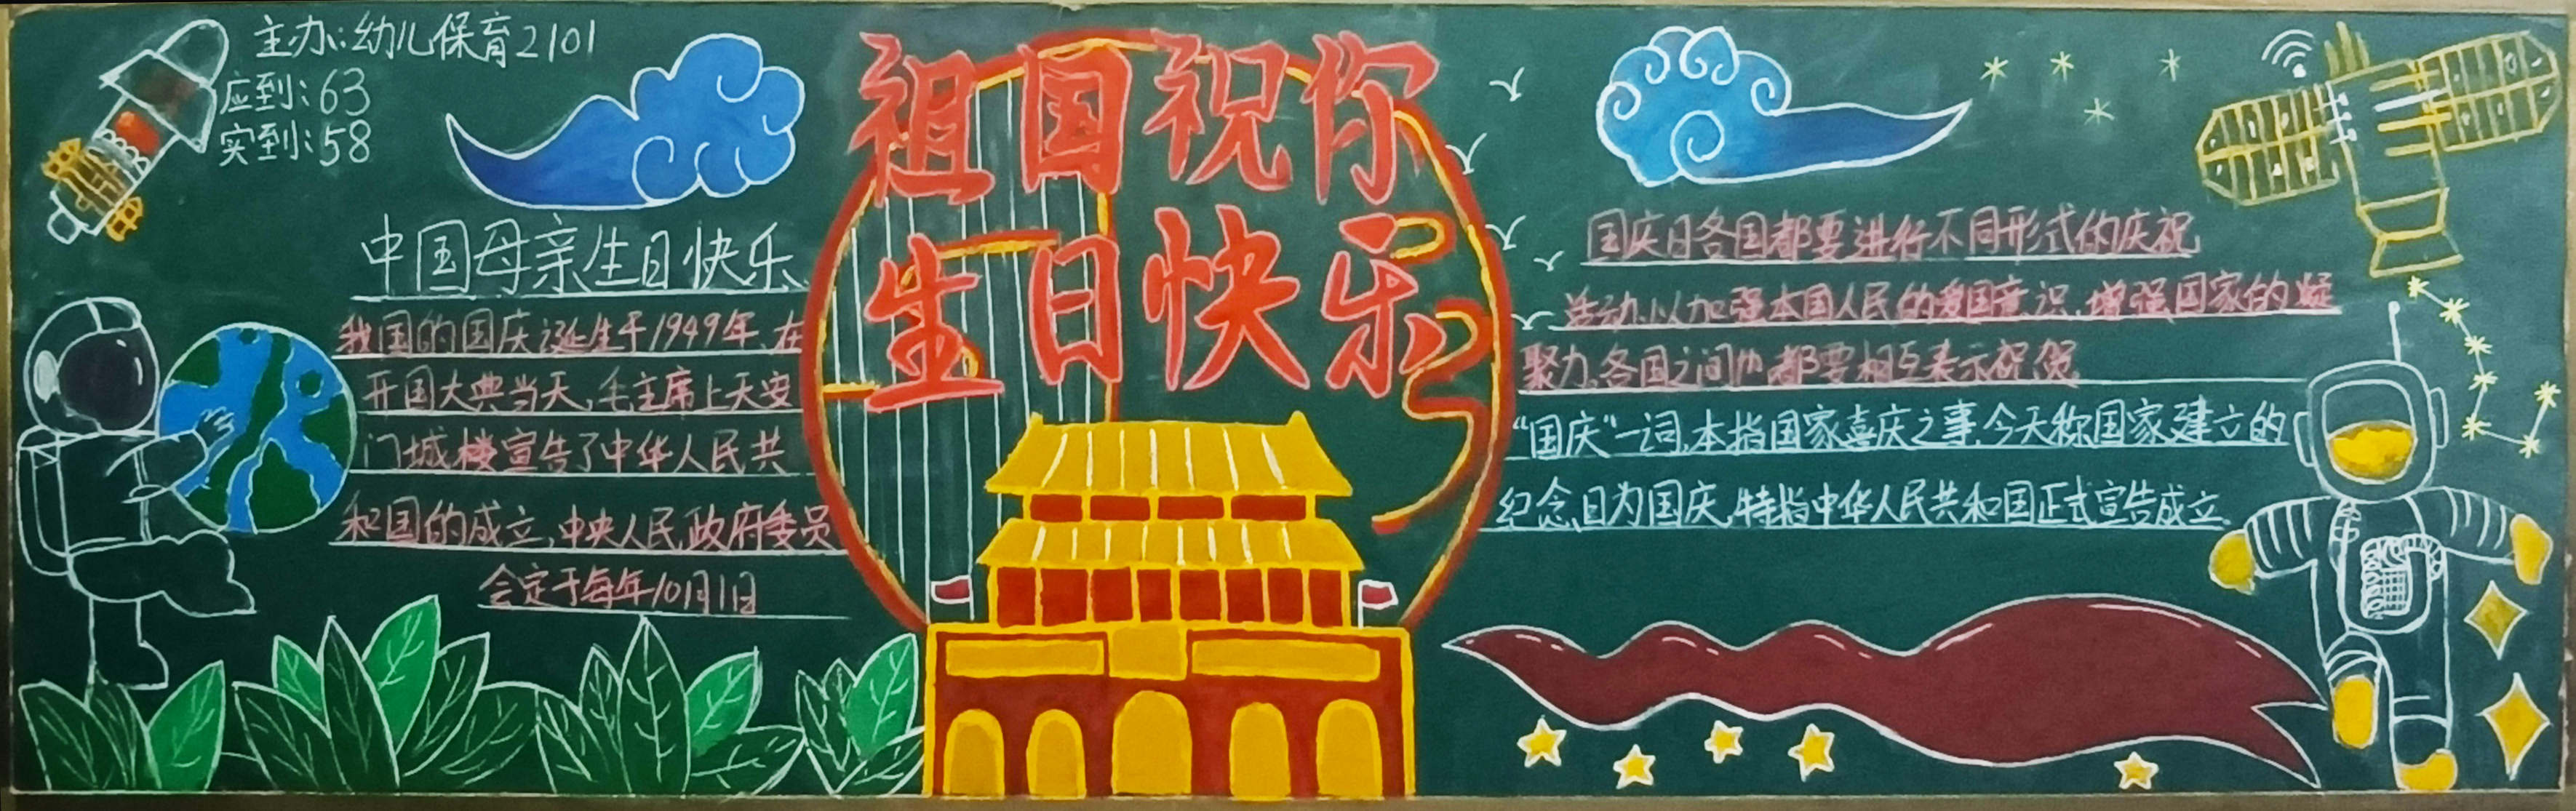 主办:幼儿保育2101
应到:63
实到:58
祖国祝你
生日快乐
中国母亲生日快乐
我国的国庆诞生于1949年、在
开国大典当天,毛主席上天安
门城楼宣告了中华人民共
和国的成立,中央人民政府委员
会定于每年10月1日
国庆日各国都要进行不同形式的庆祝
活动,以加强本国人民的爱国意识,增强国家的凝
聚力,各国之间也都要相互表示祝贺
“国庆”一词,本指国家喜庆之事,今天称国家建立的
纪念,日为国庆,特指中华人民共和国正式宣告成立.